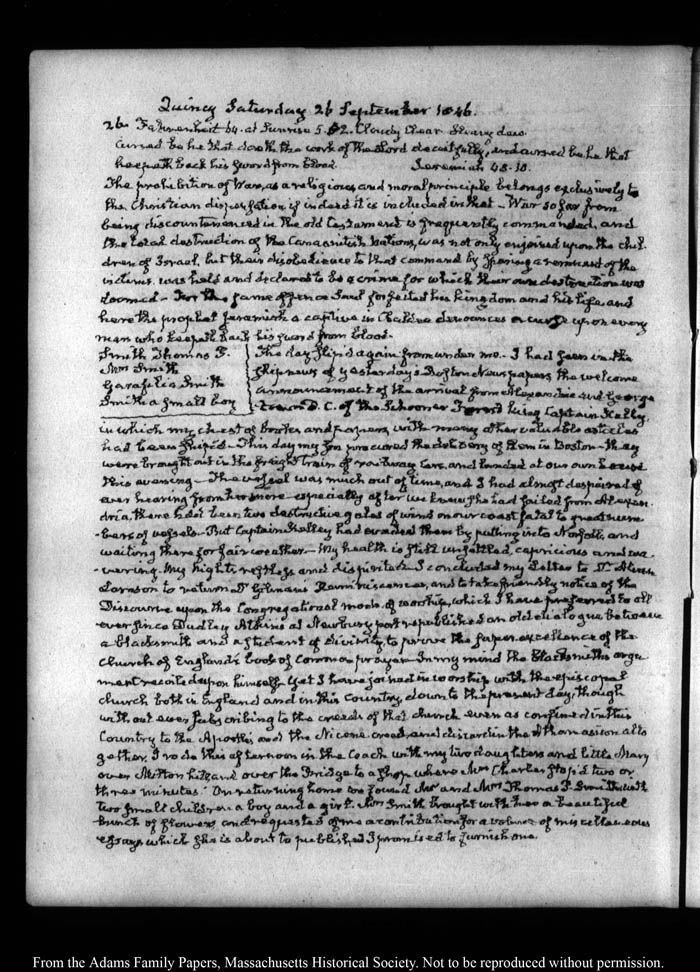 Quincy Saturday 26 September 1846.
26. Fahrenheit 64. at Sunrise 5. 52. Cloudy Clear Heavy dew.
Cursed be he that doeth the work of the Lord deceitfully, and cursed be he that
keepeth back his sword from blood. Jeremiah 48. 10.
The prohibition of War, as a religious and moral principle belongs exclusively to
the Christian dispensation if indeed it is included in that — War so far from
being discountenanced in the old testament is frequently commanded, and
the total destruction of the Canaanitish Nations, was not only enjoined upon the chil-
dren of Israel, but their disobedience to that command by sparing a remnant of the
victims, was held and declared to be a crime for which their own destruction was
doomed — For the same offence Saul forfeited his kingdom and his life, and
here the prophet Jeremiah a captive in Chaldea denounces a curse upon every
man who keepeth back his sword from blood.
Smith Thomas F. The day slip'd again from under me. I had seen in the
Mrs Smith ship news of yesterday's Boston Newspapers the welcome
Garafelia Smith announcement of the arrival from Alexandria and George-
Smith a small boy town D.C. of the Schooner King Captain Kelley.
in which my chest of books, and papers, with many other valuable articles
had been ship'd — This day my Son procured the delivery of them in Boston — they
were brought out in the freight train of railway Cars, and landed at our own house
this evening — The vessel was much out of time, and I had almost despaired of
ever hearing from her more especially after we knew she had sailed from Alexan-
dria, there had been two destructive gales of wind on our coast fatal to great num-
-bers of vessels — But Captain Kelley had evaded them by putting into Norfolk, and
waiting there for fair weather — My health is still unsettled, capricious and wa-
-vering. My nights restless and dispirited. I concluded my Letter to Dr Alvan
Lamson to return Dr Gilman's Reminiscences, and to take friendly notice of the
Discourse upon the Congregational mode of worship, which I have preferred to all
ever since Dudley Atkins at Newbury port republished an old dialogue between
a blacksmith and a student of divinity, to prove the super excellence of the
Church of England's book of Common prayer. In my mind the Blacksmith's argu
ment recoiled upon himself. Yet I have joined in worship with the episcopal
church both in England and in this Country, down to the present day, though
without ever subscribing to the creeds of that church even as confined in this
Country to the Apostles and the Nicene creed, and discarding the Athanasian alto
gether. I rode this afternoon in the Coach with my two daughters and little Mary
over Milton hill, and over the Bridge to a shop where Mrs Charles stop'd two or
three minutes. On returning home we found Mr and Mrs Thomas F. Smith with
two small children a boy and a girl. Mrs Smith brought with her a beautiful
bunch of flowers and requested of me a contribution for a volume of miscellaneous
essays which she is about to publish. I promised to furnish one.
From the Adams Family Papers, Massachusetts Historical Society. Not to be reproduced without permission.